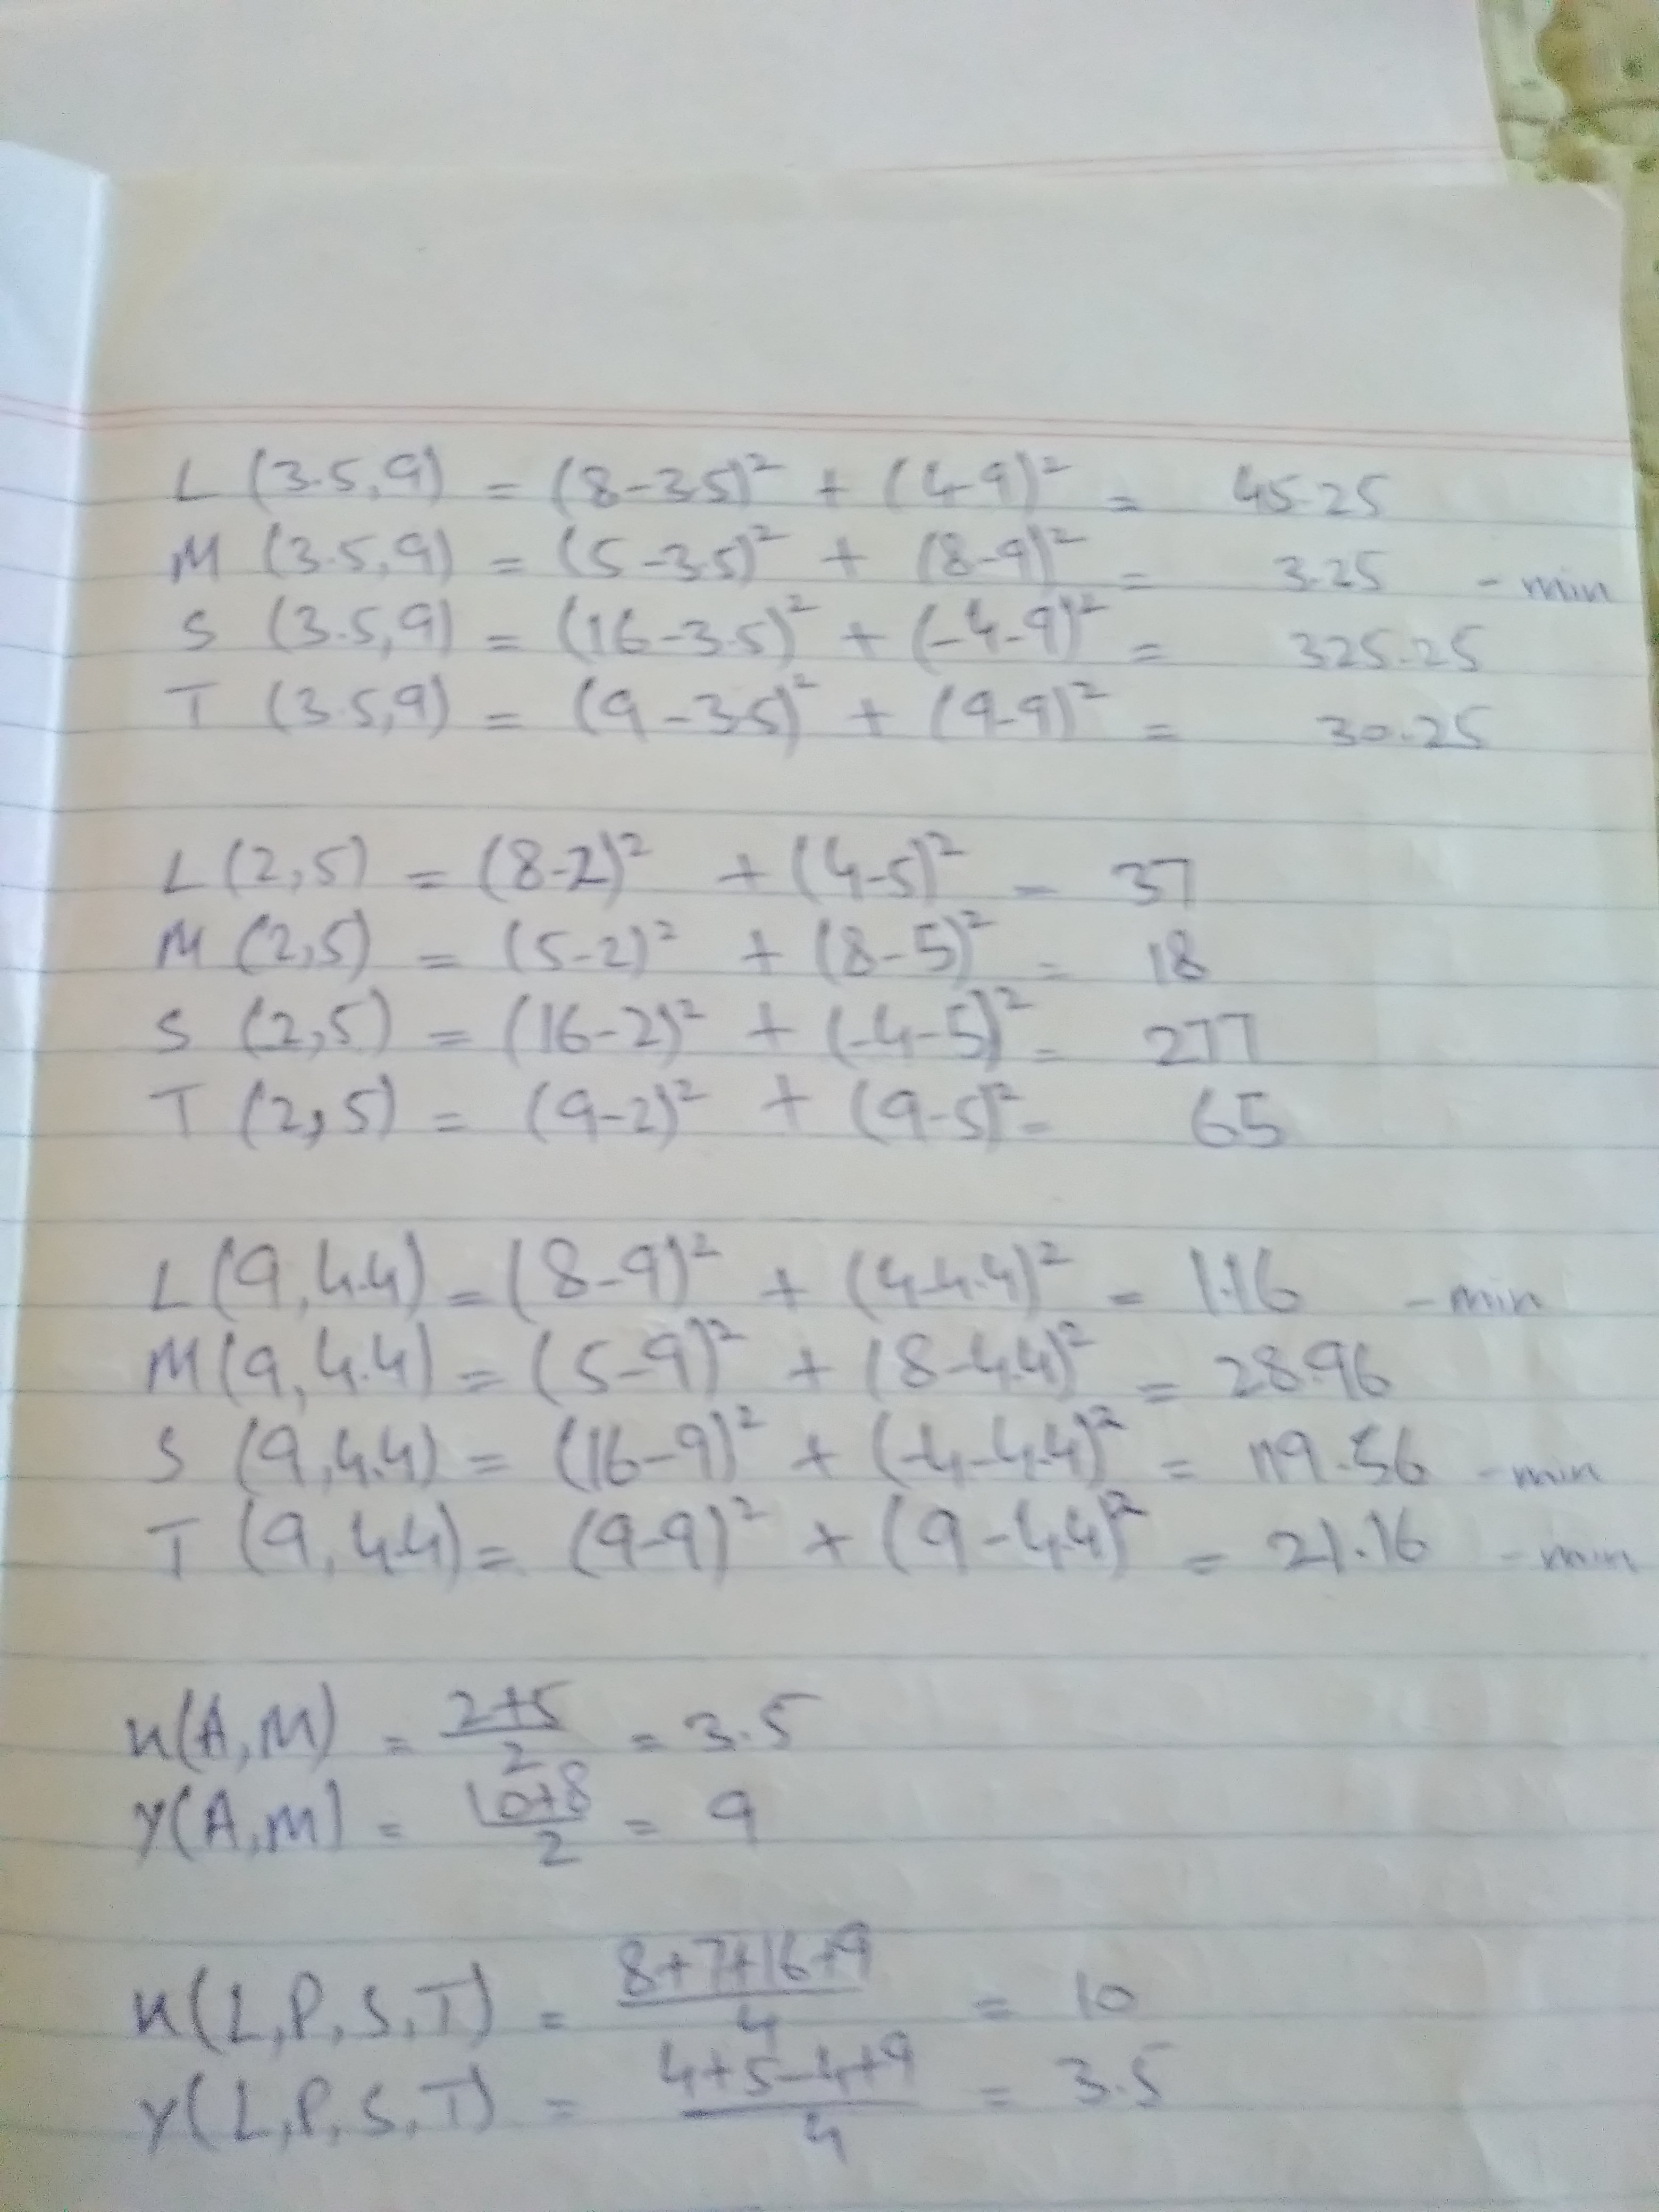 L (3.5,9) = (8-3.5)² + (4-9)² = 45.25
M (3.5,9) = (5-3.5)² + (8-9)² = 3.25 - min
S (3.5,9) = (16-3.5)² + (-4-9)² = 325.25
T (3.5,9) = (9-3.5)² + (9-9)² = 30.25
L (2,5) = (8-2)² + (4-5)² = 37
M (2,5) = (5-2)² + (8-5)² = 18
S (2,5) = (16-2)² + (-4-5)² = 277
T (2,5) = (9-2)² + (9-5)² = 65
L (9,4.4) = (8-9)² + (4-4.4)² = 1.16 - min
M (9,4.4) = (5-9)² + (8-4.4)² = 28.96
S (9,4.4) = (16-9)² + (-4-4.4)² = 119.56 - min
T (9,4.4) = (9-9)² + (9-4.4)² = 21.16 - min
x(A,M) = 2+5/2 = 3.5
y(A,M) = 10+8/2 = 9
x(L,P,S,T) = 8+7+16+9/4 = 10
y(L,P,S,T) = 4+5-4+9/4 = 3.5